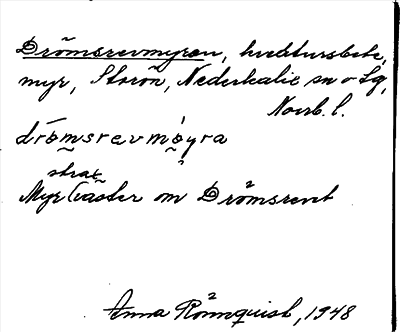 Drömsrevmyran, kreatursbete,
myr, Storön, Nederkalix sn o Lg,
Norrb. l.
drömsrevmöyra
Myr strax väster om Drömsrevet
Anna Rönnquist, 1948